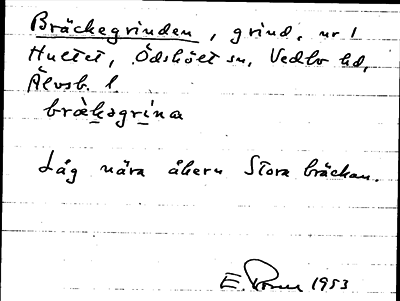 Bräckegrinden, grind, nr 1
Hultet, Ödskölt sn, Vedbo hd,
Älvsb. l.
bräkagrina
Låg nära åkern Stora bräckan.
E. 1953